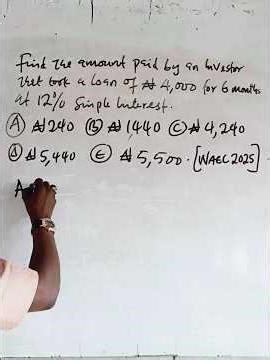 Find the amount paid by an investor
that took a loan of ₦4,000 for 6 months
at 12% Simple Interest.
Ⓐ ₦240 Ⓑ ₦1440 Ⓒ ₦4,240
Ⓓ ₦5,440 Ⓔ ₦5,500. [WAEC 2025]
A